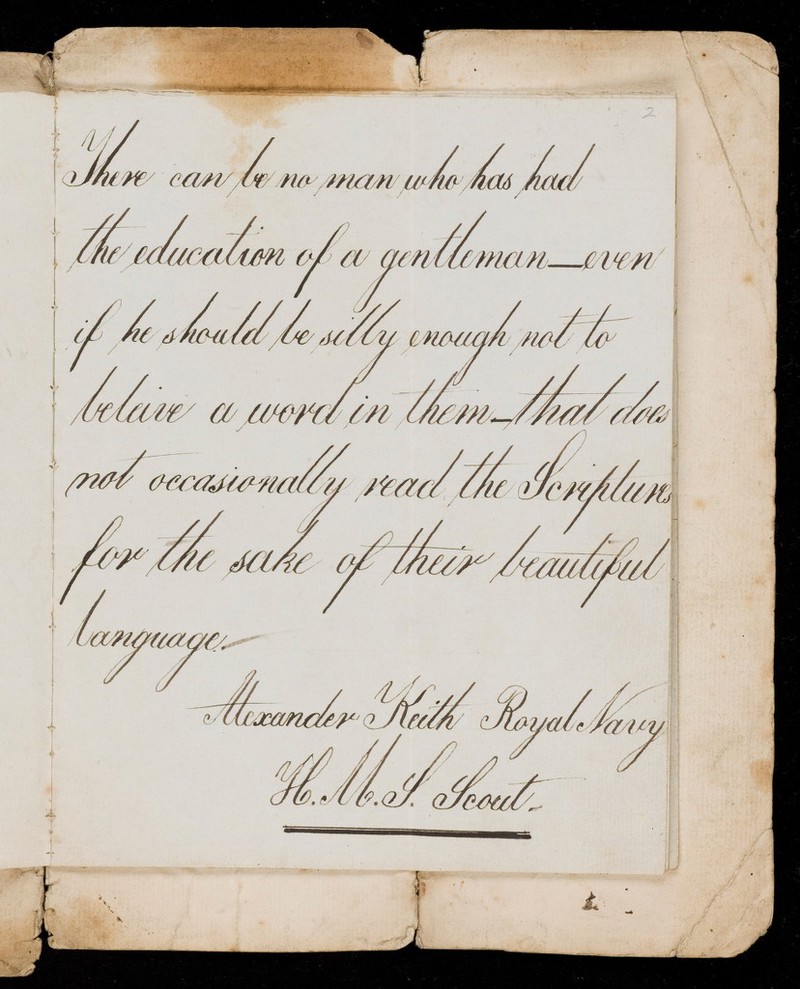 2
There can be no man who has had
the education of a gentleman—even
if he should be silly enough not to
beleive a word in them—that does
not occasionally read the Scriptures
for the sake of their beautiful
language.—
Alexander Keith Royal Navy
H.M.S. Scout—